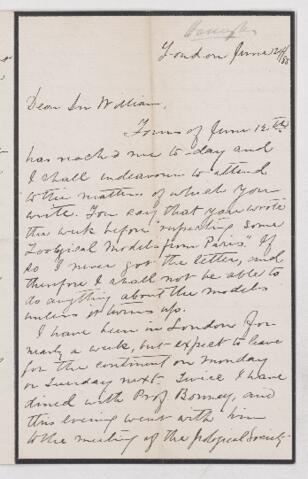 London June 24/85
Dear Sir William,
Yours of June 12th
has reached me to-day and
I shall endeavour to attend
to the matters of which you
write. You say that you wrote
the week before respecting some
Zoological Models from Paris. If
so I never got the letter, and
therefore I shall not be able to
do anything about the models
unless it turns up.
I have been in London for
nearly a week, but expect to leave
for the continent on Monday
or Tuesday next. Twice I have
dined with Prof Bonney, and
this evening went with him
to the meeting of the Geological Society.